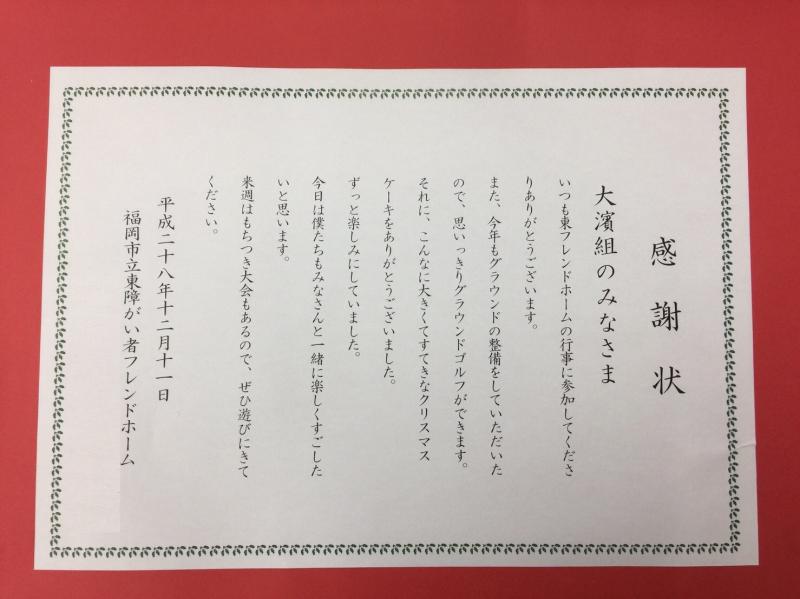 感謝状
大濱組のみなさま
いつも東フレンドホームの行事に参加してくださ
りありがとうございます。
また、今年もグラウンドの整備をしていただいた
ので、思いっきりグラウンドゴルフができます。
それに、こんなに大きくてすてきなクリスマス
ケーキをありがとうございました。
ずっと楽しみにしていました。
今日は僕たちもみなさんと一緒に楽しくすごした
いと思います。
来週はもちつき大会もあるので、ぜひ遊びにきて
ください。
平成二十八年十二月十一日
福岡市立東障がい者フレンドホーム